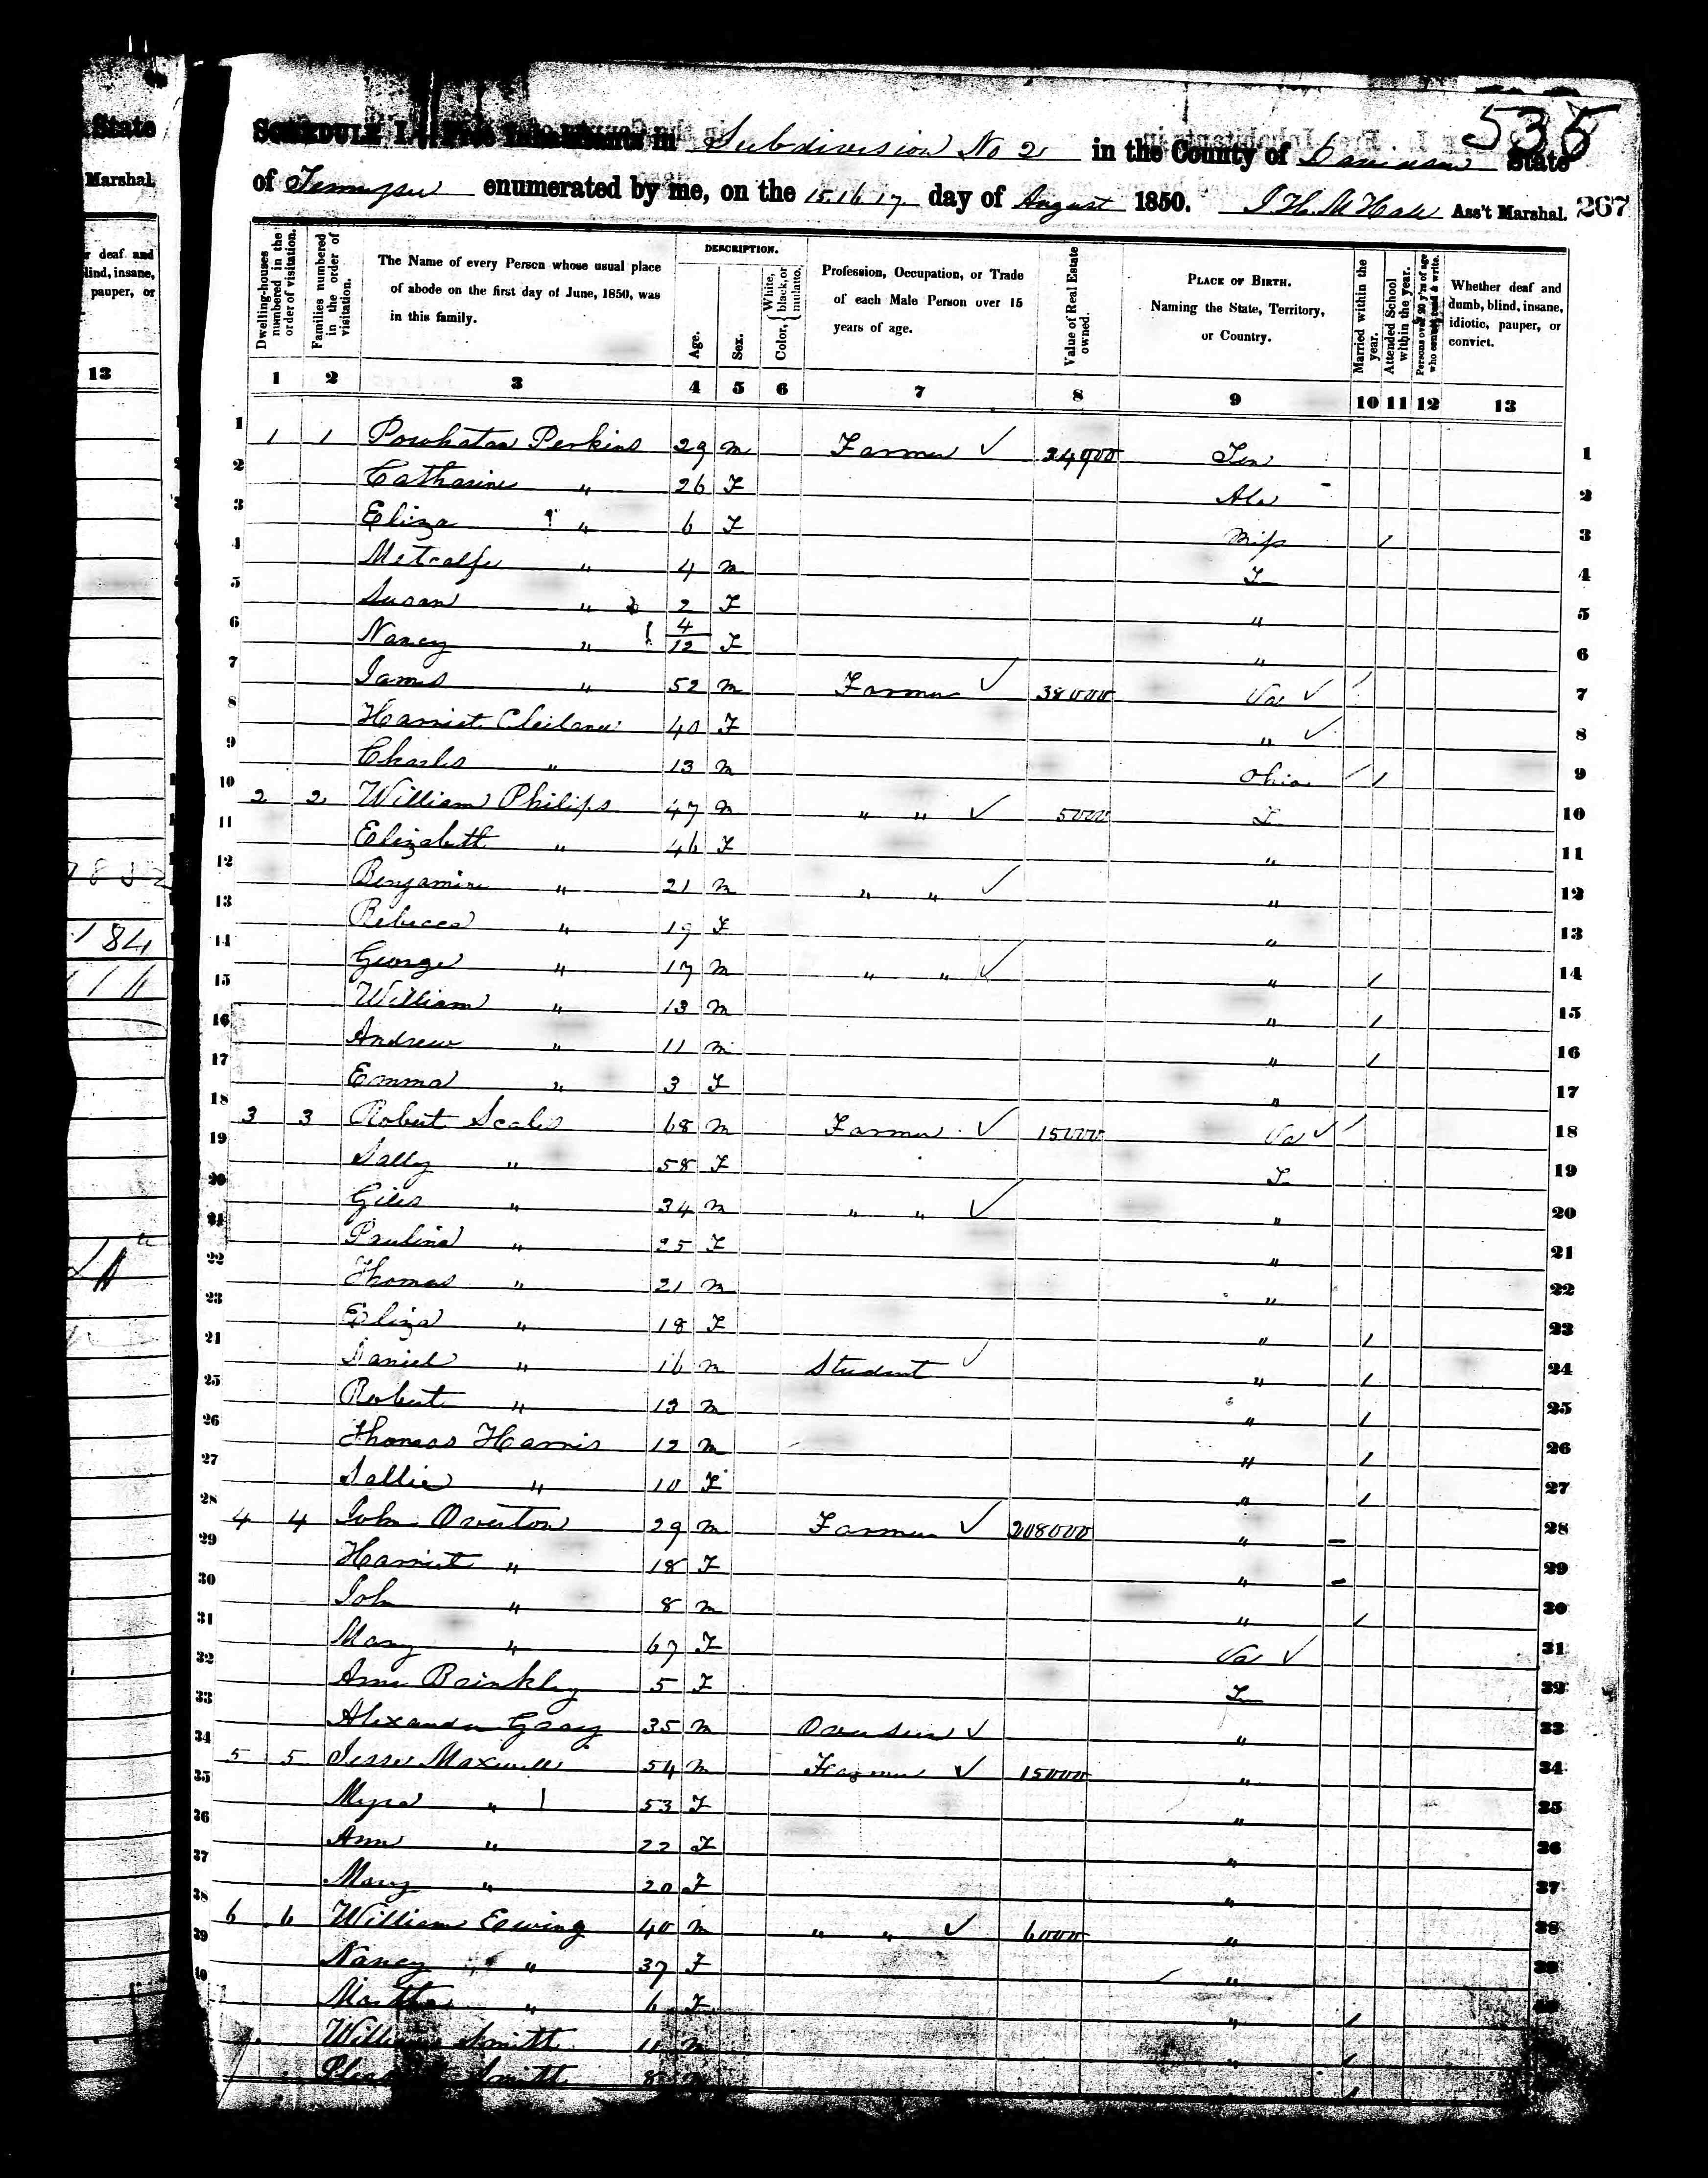 State
Marshal.
deaf and
blind, insane,
pauper, or
13
184
535
SCHEDULE I. Free Inhabitants in Subdivision No 2 in the County of Davidson State
of Tennessee enumerated by me, on the 15.16.17. day of August 1850. Ass't Marshal. 267
Dwelling-houses numbered in the order of visitation.
Families numbered in the order of visitation.
The Name of every Person whose usual place of abode on the first day of June, 1850, was in this family.
DESCRIPTION.
Age.
Sex.
Color, { White, black, or mulatto.
Profession, Occupation, or Trade of each Male Person over 15 years of age.
Value of Real Estate owned.
PLACE OF BIRTH. Naming the State, Territory, or Country.
Married within the year.
Attended School within the year.
Persons over 20 y'rs of age who cannot read & write.
Whether deaf and dumb, blind, insane, idiotic, pauper, or convict.
1 2 3 4 5 6 7 8 9 10 11 12 13
1 1 1 Powhatan Perkins 29 M Farmer ✓ 24000 Ten 1
2 Catharine " 26 F Ala 2
3 Eliza " 6 F Miss / 3
4 Metcalfe " 4 M T 4
5 Susan " 2 F " 5
6 Nancy " 4/12 F " 6
7 James " 52 M Farmer ✓ 38000 Va ✓ 7
8 Harriet 40 F " ✓ 8
9 Charles " 13 M Ohio / 9
10 2 2 William Philips 47 M " " ✓ 5000 T 10
11 Elizabeth " 46 F " 11
12 Benjamin " 21 M " " ✓ " 12
13 Rebecca " 19 F " 13
14 George " 17 M " " ✓ " / 14
15 William " 13 M " / 15
16 Andrew " 11 M " / 16
17 Emma " 3 F " 17
18 3 3 Robert Scales 68 M Farmer ✓ 15000 Va ✓ 18
19 Sally " 58 F T 19
20 Giles " 34 M " " ✓ " 20
21 Paulina " 25 F " 21
22 Thomas " 21 M " 22
23 Eliza " 18 F " / 23
24 Daniel " 16 M Student ✓ " / 24
25 Robert " 13 M " / 25
26 Thomas Harris 12 M " / 26
27 Sallie " 10 F " / 27
28 4 4 John Overton 29 M Farmer ✓ 208000 " - 28
29 Harriet " 18 F " - 29
30 John " 8 M " / 30
31 Mary " 67 F Va ✓ 31
32 Ann Brinkley 5 F Ten 32
33 Alexander Gray 35 M Overseer ✓ " 33
34 5 5 Jesse Maxwell 54 M Farmer ✓ 15000 " 34
35 Myra " 53 F " 35
36 Ann " 22 F " 36
37 Mary " 20 F " 37
38 6 6 William Ewing 40 M " " ✓ 6000 " 38
39 Nancy " 37 F " 39
40 Martha " 6 F " / 40
William Smith 11 M " /
Smith 8 M /